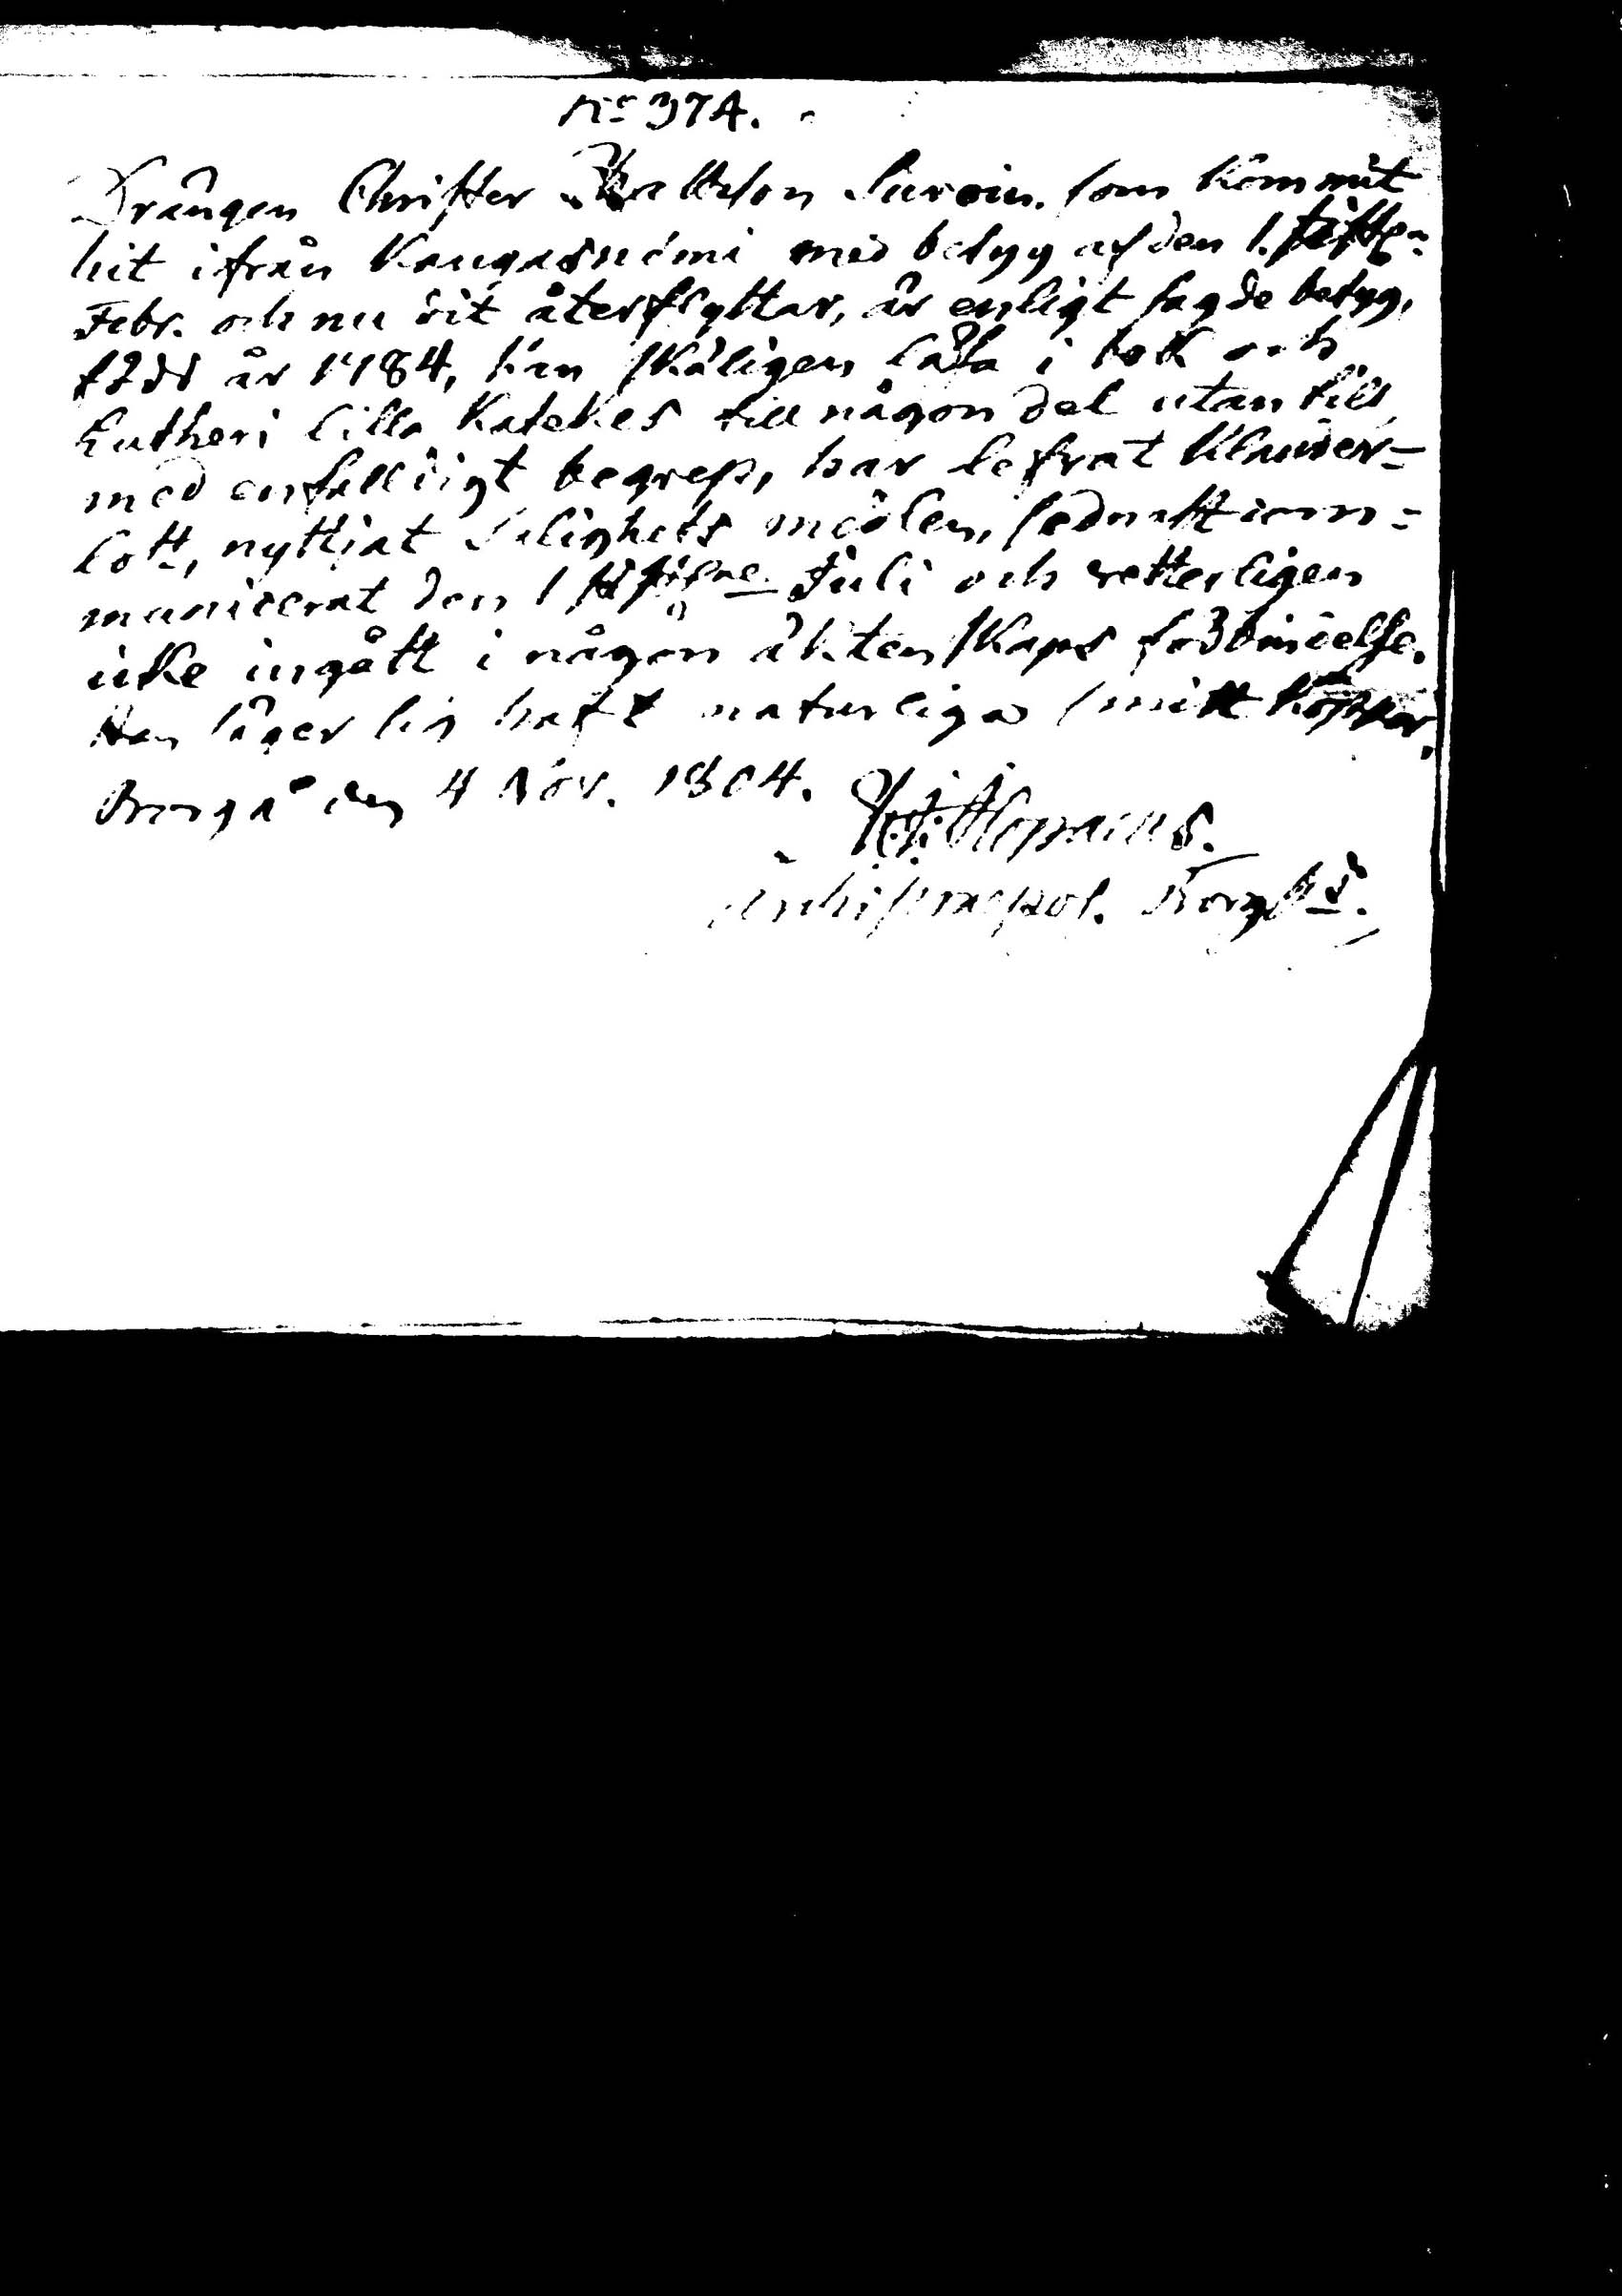 No 374.
Drängen Christer Suroin. som kommit
hit ifrån Kangasnémi med betyg af den 1. siste
Febr. och nu dit återflyttar, är enligt sagde betyg,
född år 1784, kan skäligen läsa i bok och
Lutheri lilla Katekes till någon del utan till
med enfalldigt begrep, har lefvat klander=
lott, nyttjat Salighets medlen, sednast com=
municerat den 1 Juli och vetterligen
icke ingått i någon äktenskaps förbindelse.
Han säger sig haft naturliga smittkoppor.
Borgå den 4 Nov. 1804.
Alopaeus.